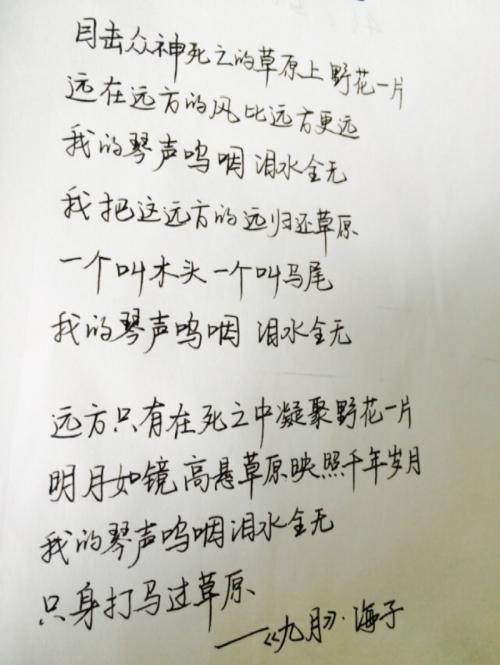 目击众神死亡的草原上野花一片
远在远方的风比远方更远
我的琴声呜咽 泪水全无
我把这远方的远归还草原
一个叫木头一个叫马尾
我的琴声呜咽 泪水全无
远方只有在死亡中凝聚野花一片
明月如镜高悬草原映照千年岁月
我的琴声呜咽泪水全无
只身打马过草原
——《九月》·海子